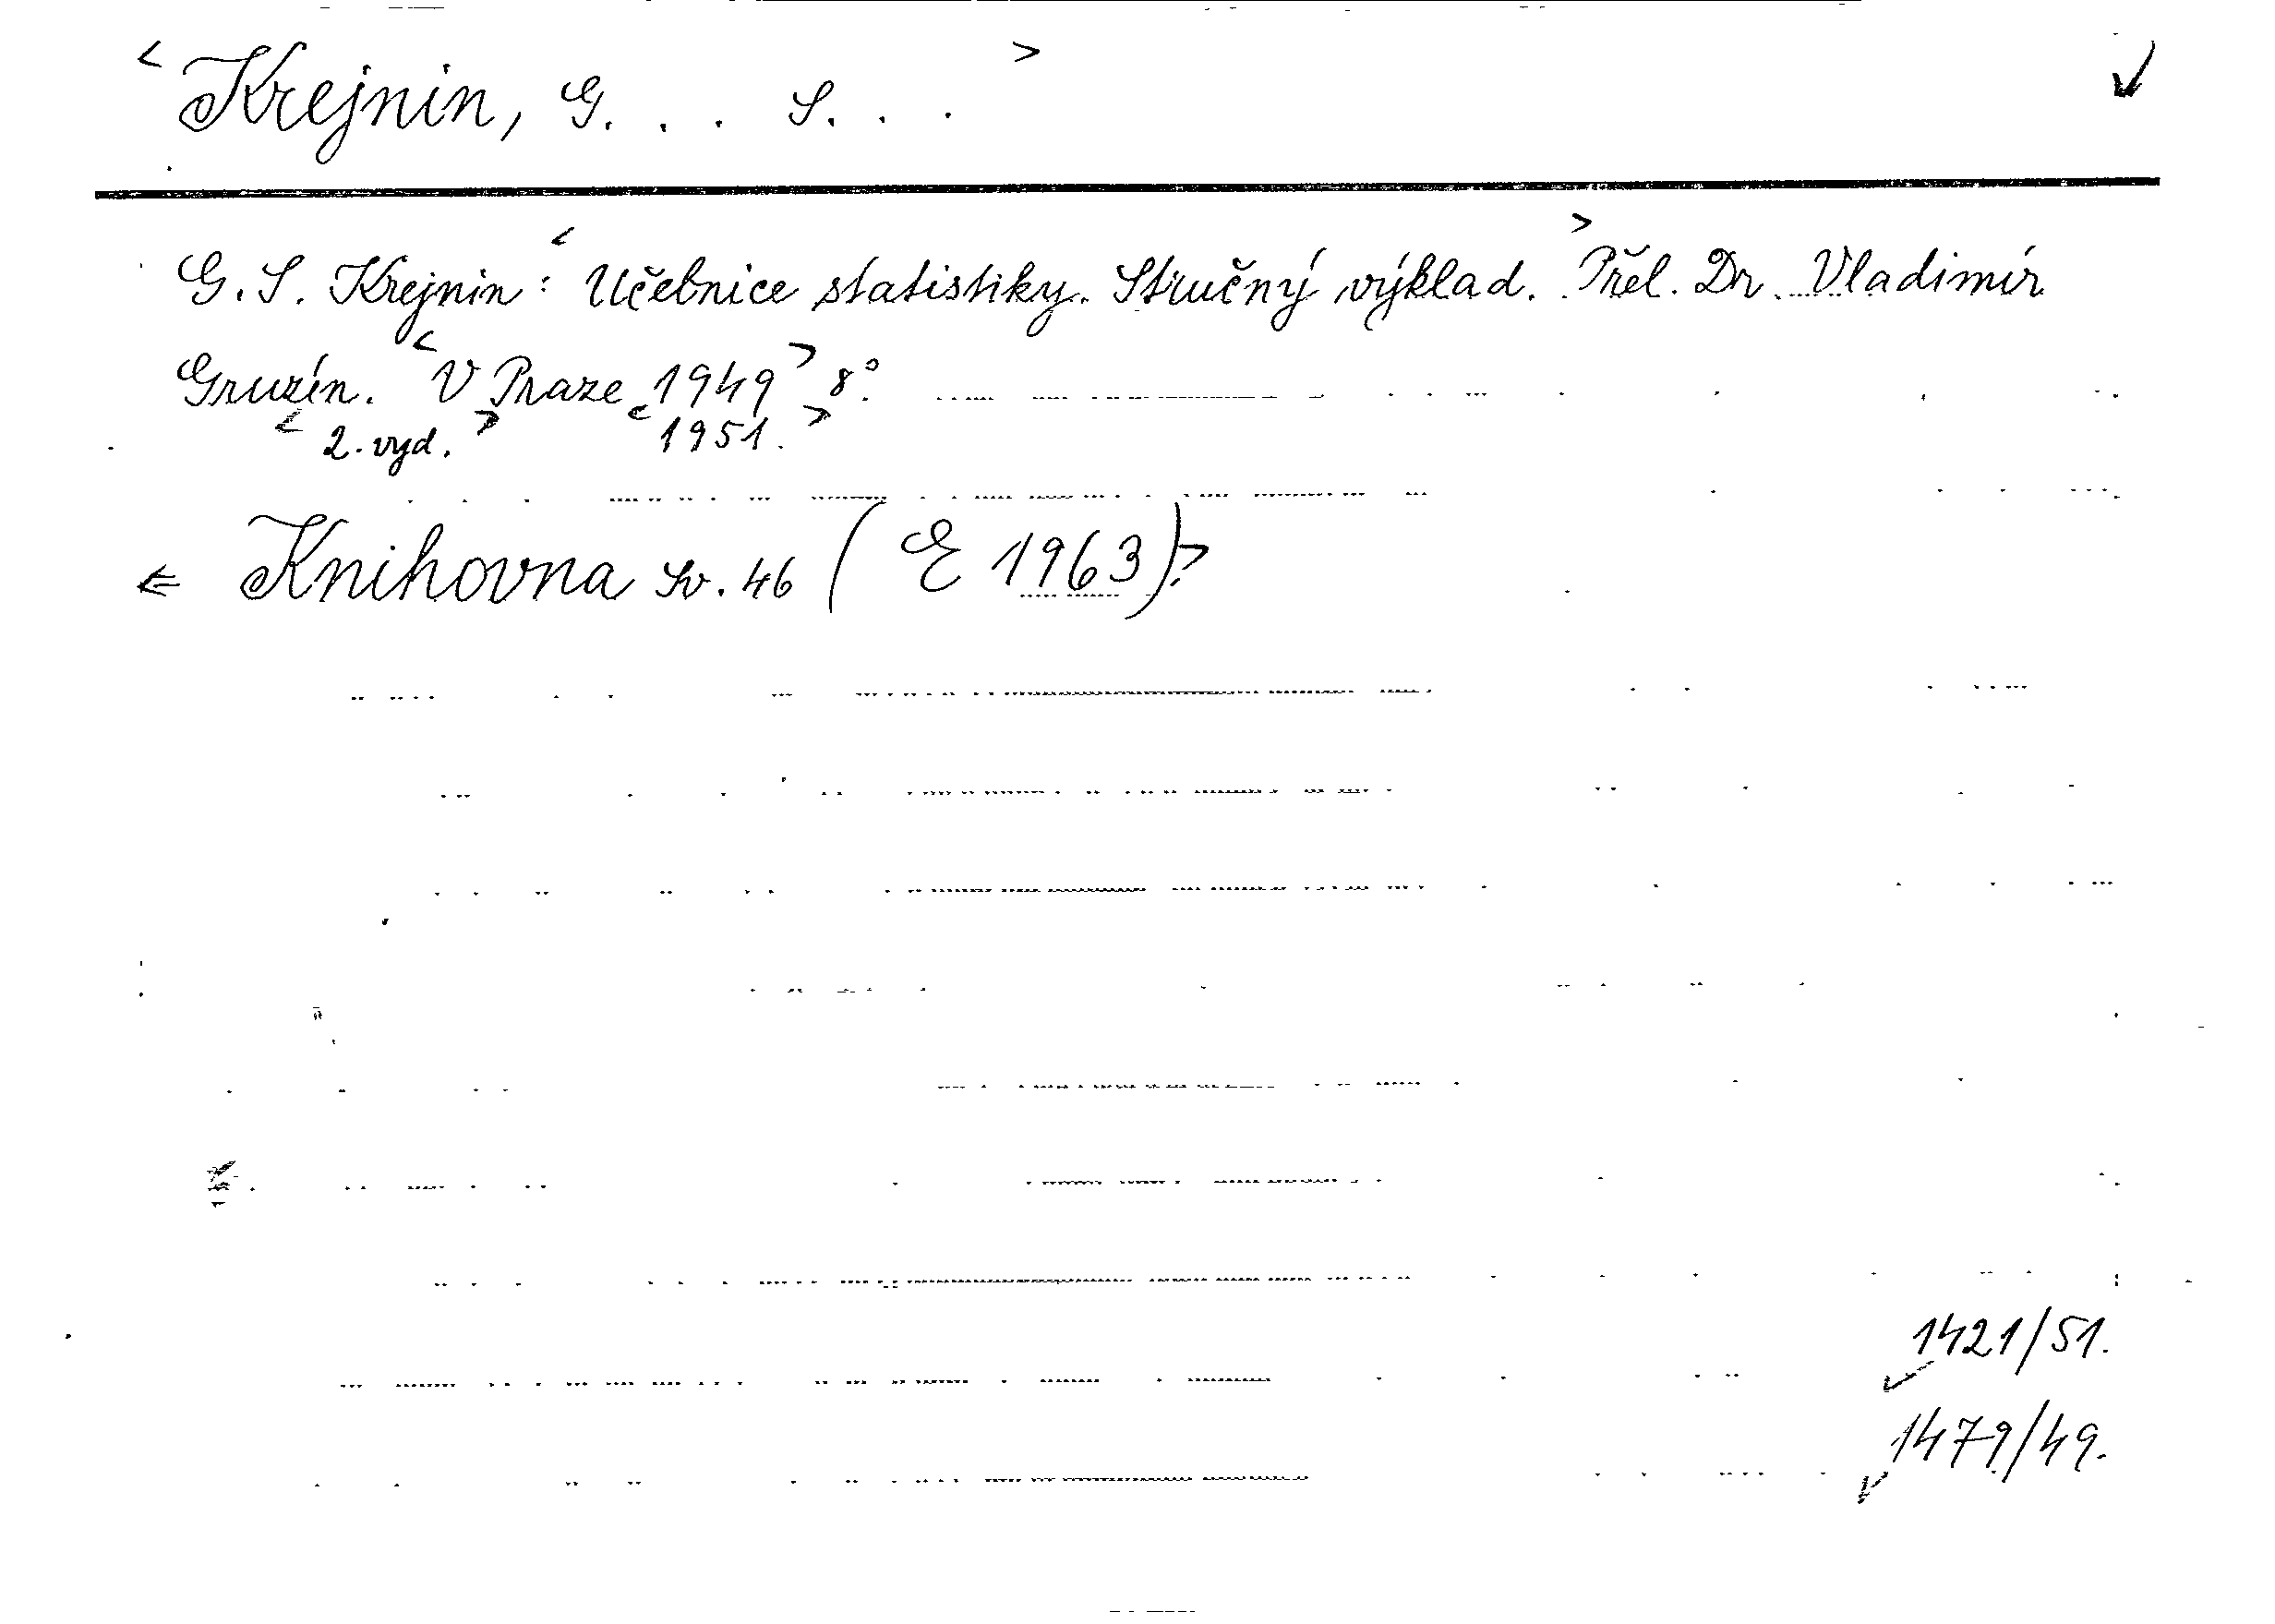 < Krejnin, G. . . S. . . >
G. S. Krejnin: < Učebnice statistiky. Stručný výklad. > Přel. Dr. Vladimír
Gruzín. < V Praze 1949 > 8°.
< 2. vyd. > < 1951. >
< Knihovna sv. 46 ( E 1963 ) >.
1421/51.
1479/49.